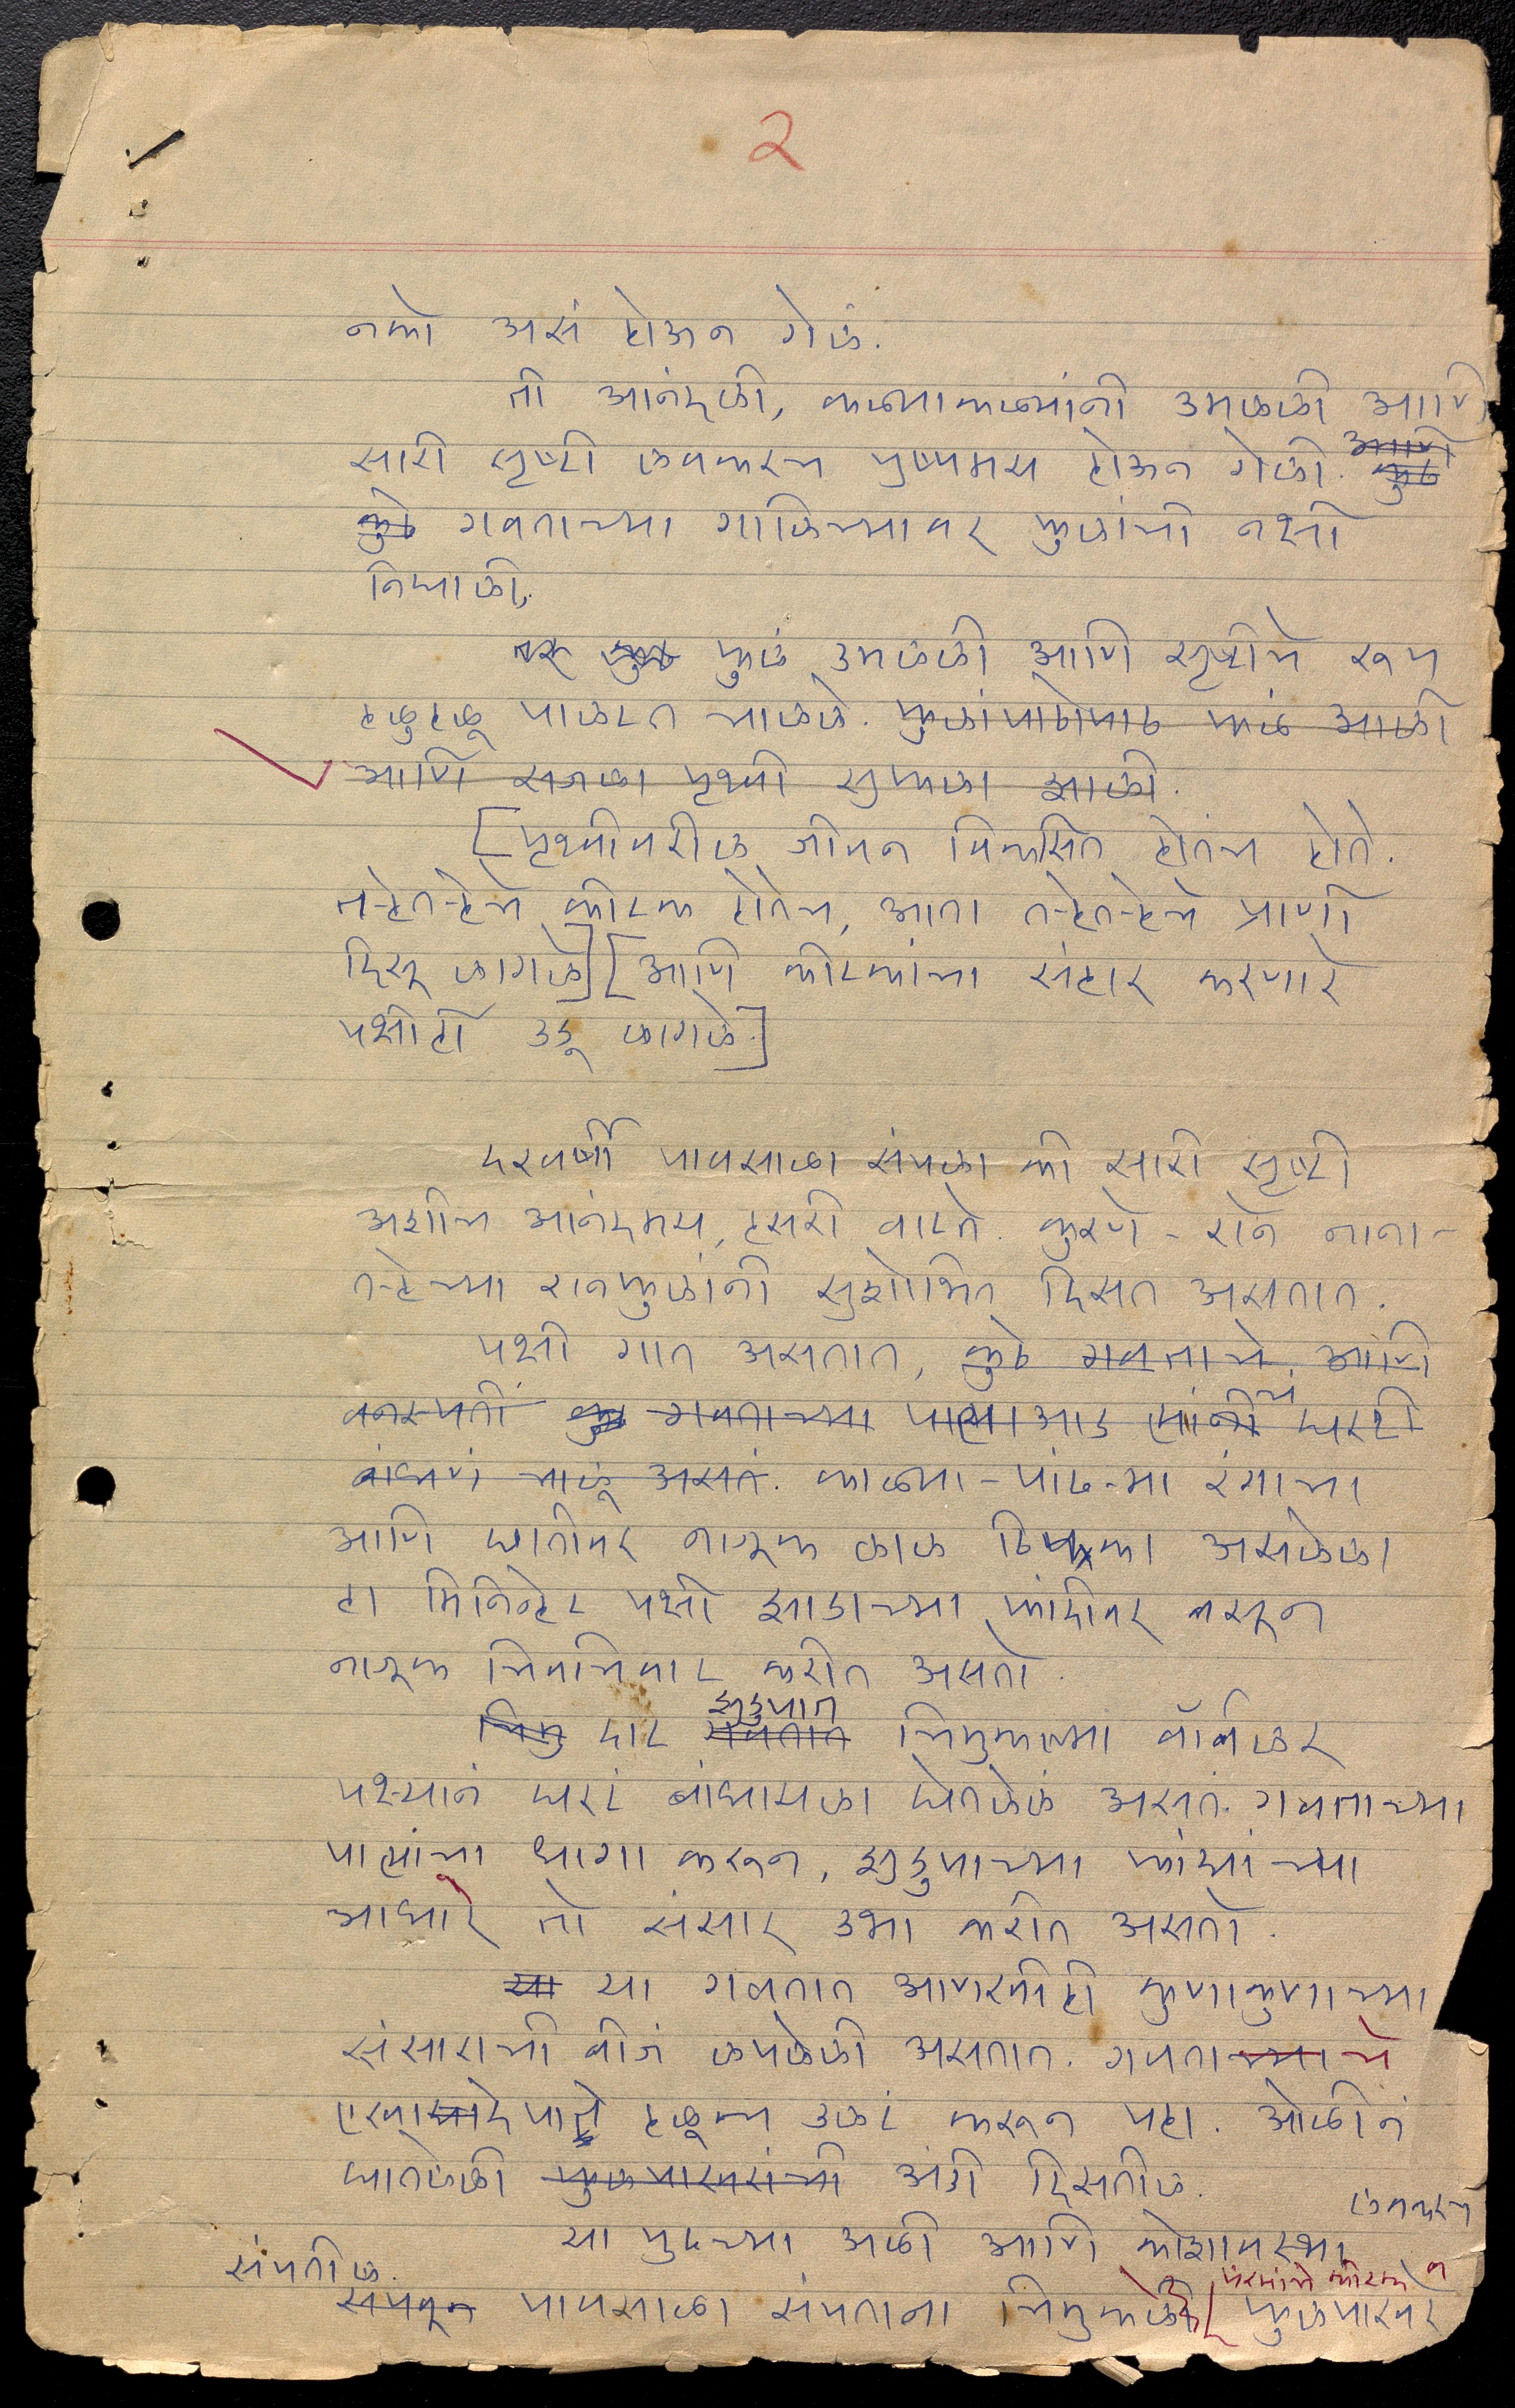 २
नको असं होऊन गेलं.
ती आनंदली, कळ्याकळ्यांनी उमलली आणि
सारी सृष्टी लवकरच पुष्पमय होऊन गेली. आणि
फुलं गवताच्या गालिच्यावर फुलांची नक्षी
निघाली.
फुलं उमलली आणि सृष्टीचे रूप
हळुहळू पालटत चालले. फुलांपाठोपाठ फळं आली
आणि सगळा पृथ्वी सुफळा झाली.
[पृथ्वीवरील जीवन विकसित होतंच होते.
तऱ्हेतऱ्हेचे कीटक होतेच, आता तऱ्हेतऱ्हेचे प्राणी
दिसू लागले] [आणि कीटकांचा संहार करणारे
पक्षीही उडू लागले.]
दरवर्षी पावसाळा संपला की सारी सृष्टी
अशीच आनंदमय, हसरी वाटते. कुरणे - राने नाना-
तऱ्हेच्या रानफुलांनी सुशोभित दिसत असतात.
पक्षी गात असतात, कुठे गवताचे, आणि
वनस्पतीं गवताच्या पात्याआड त्यांची घरटी
बांधणं चालू असतं. काळ्या-पांढऱ्या रंगाचा
आणि छातीवर नाजूक लाल ठिपका असलेला
हा मिनिव्हेट पक्षी झाडाच्या फांदीवर बसून
नाजूक चिवचिवाट करीत असतो.
झुडुपात
चिमु दाट गवतात चिमुकल्या वॉर्बलर
पक्ष्यानं घरटं बांधायला घेतलेलं असतं. गवताच्या
पात्यांचा धागा करून, झुडुपाच्या फांद्यांच्या
आधारे तो संसार उभा करीत असतो.
या या गवतात आणखीही कुणाकुणाच्या
संसाराची बीजं लपलेली असतात. गवताच्या चे
एखादे पाते हळूच उलटं करून पहा. ओळीनं
घातलेली फुलपाखरांची अंडी दिसतील.
लवकरच
या पुढच्या अळी आणि कोशावस्था
संपतील.
पंखांचे कीटक व
संपवून पावसाळा संपताना चिमुकली [फुलपाखरे